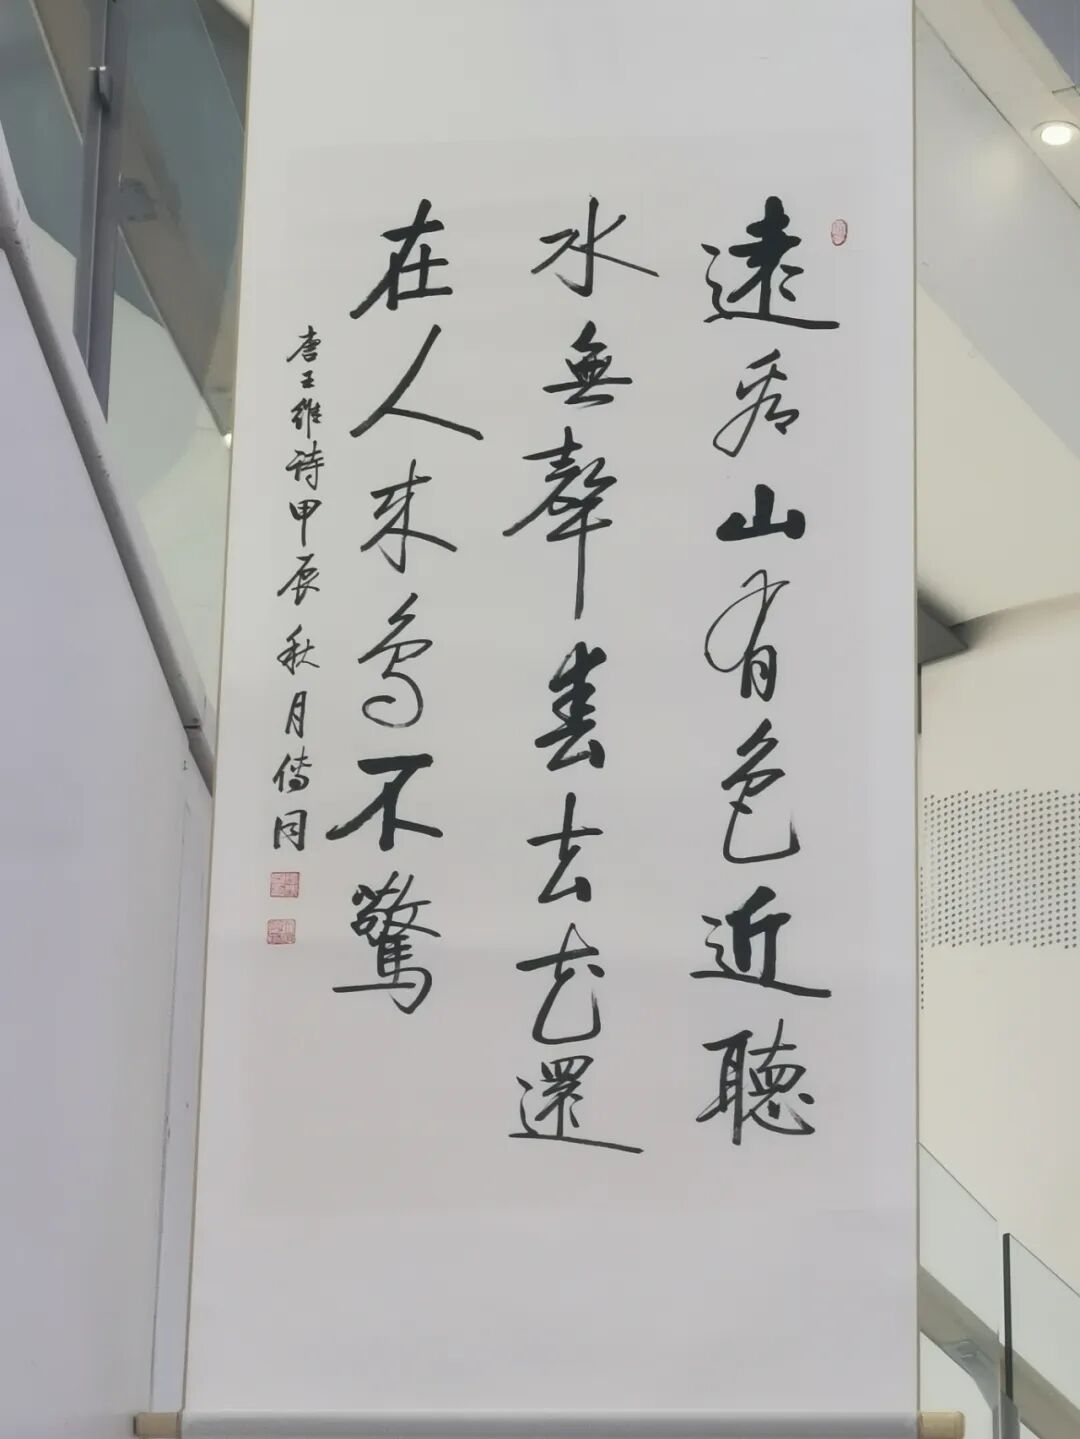 遠看山有色近聽
水無聲春去花還
在人來鳥不驚
唐王維詩甲辰秋月 同